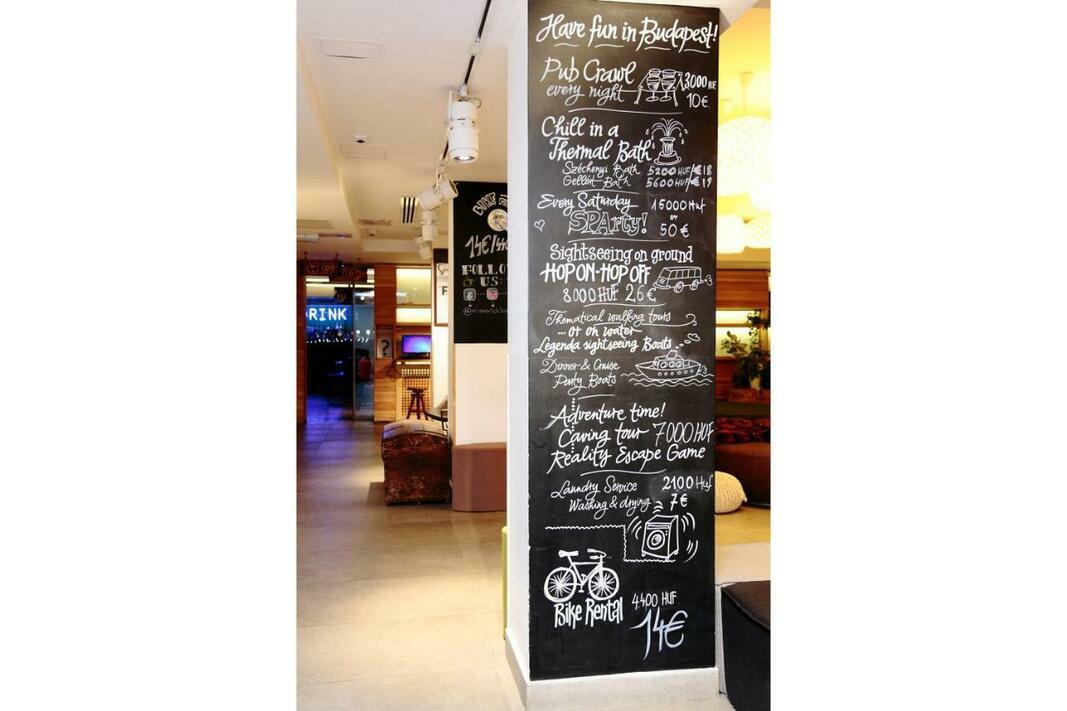 Have fun in Budapest!
Pub Crawl 3000 HUF
every night 10€
Chill in a
Thermal Bath
Széchenyi Bath 5200 HUF/€18
Gellért Bath 5600 HUF/€19
Every Saturday 15000 Huf
or
SPArty! 50€
Sightseeing on ground
HOP ON-HOP OFF
8000 HUF 26€
Thematical walking tours
...or on water
Legenda sightseeing Boats...
Dinner & Cruise
Party Boats
Adventure time!
Caving tour 7000 HUF
Reality Escape Game
Laundry Service 2100 Huf
Washing & drying 7€
Bike Rental 4.400 HUF
14€
BIKE
14€/44
FOLLO
US:
RINK
?